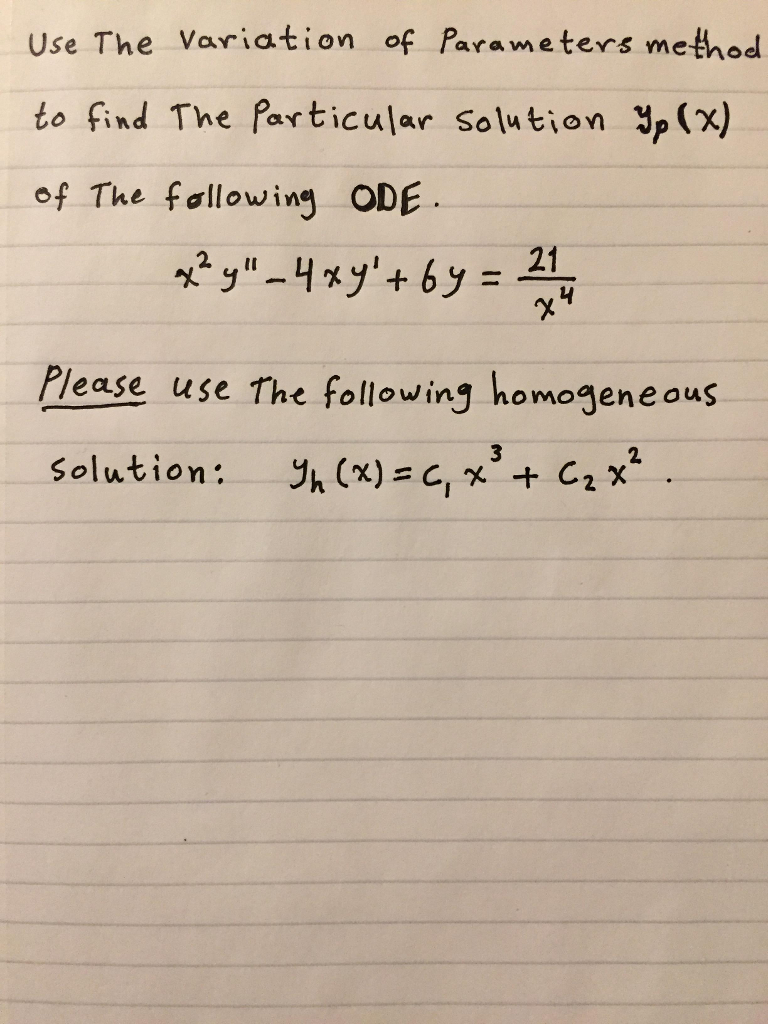 Use The Variation of Parameters method
to find The Particular Solution yₚ(x)
of The following ODE.
x² y" - 4xy' + 6y = 21/x⁴
Please use The following homogeneous
Solution: yₕ(x) = C₁ x³ + C₂ x².